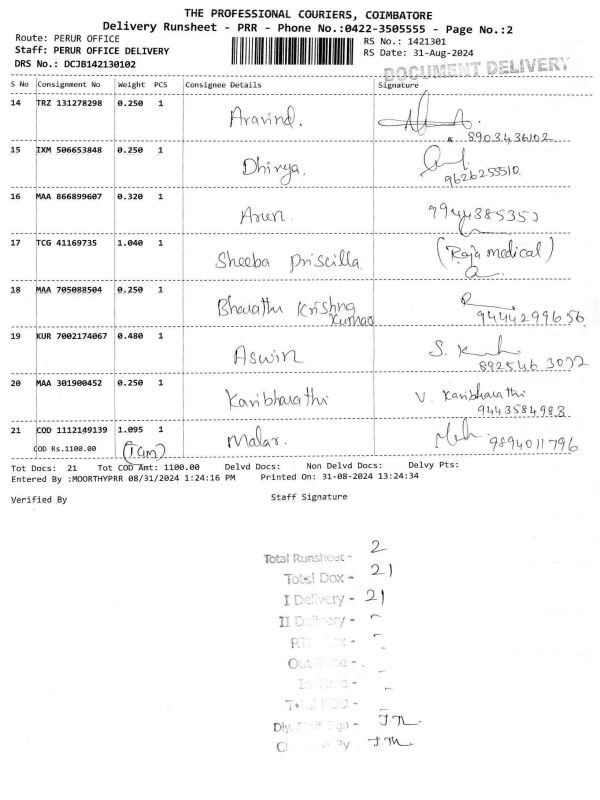 THE PROFESSIONAL COURIERS, COIMBATORE
Delivery Runsheet - PRR - Phone No.:0422-3505555 - Page No.:2
Route: PERUR OFFICE RS No.: 1421301
Staff: PERUR OFFICE DELIVERY RS Date: 31-Aug-2024
DRS No.: DCJB142130102
DOCUMENT DELIVERY
S No Consignment No Weight PCS Consignee Details Signature
14 TRZ 131278298 0.250 1 Aravind.
8903436102
15 IXM 506653848 0.250 1 Dhivya.
9626255510
16 MAA 866899607 0.320 1 Arun. 9944385350
17 TCG 41169735 1.040 1 Sheeba Priscilla (Raja medical)
18 MAA 705088504 0.250 1 Bharathi Krishna
Kumar 9444299656
19 KUR 7002174067 0.480 1 Aswin S.
892546 3072
20 MAA 301900452 0.250 1 Karibharathi V. Karibharathi
9443584983
21 COD 1112149139 1.095 1 Malar. 9894011796
COD Rs.1100.00
Tot Docs: 21 Tot COD Amt: 1100.00 Delvd Docs: Non Delvd Docs: Delvy Pts:
Entered By :MOORTHYPRR 08/31/2024 1:24:16 PM Printed On: 31-08-2024 13:24:34
Verified By Staff Signature
Total Runsheet - 2
Total Dox - 21
I Delivery - 21
II Delivery - -
Out Time -
In Time -